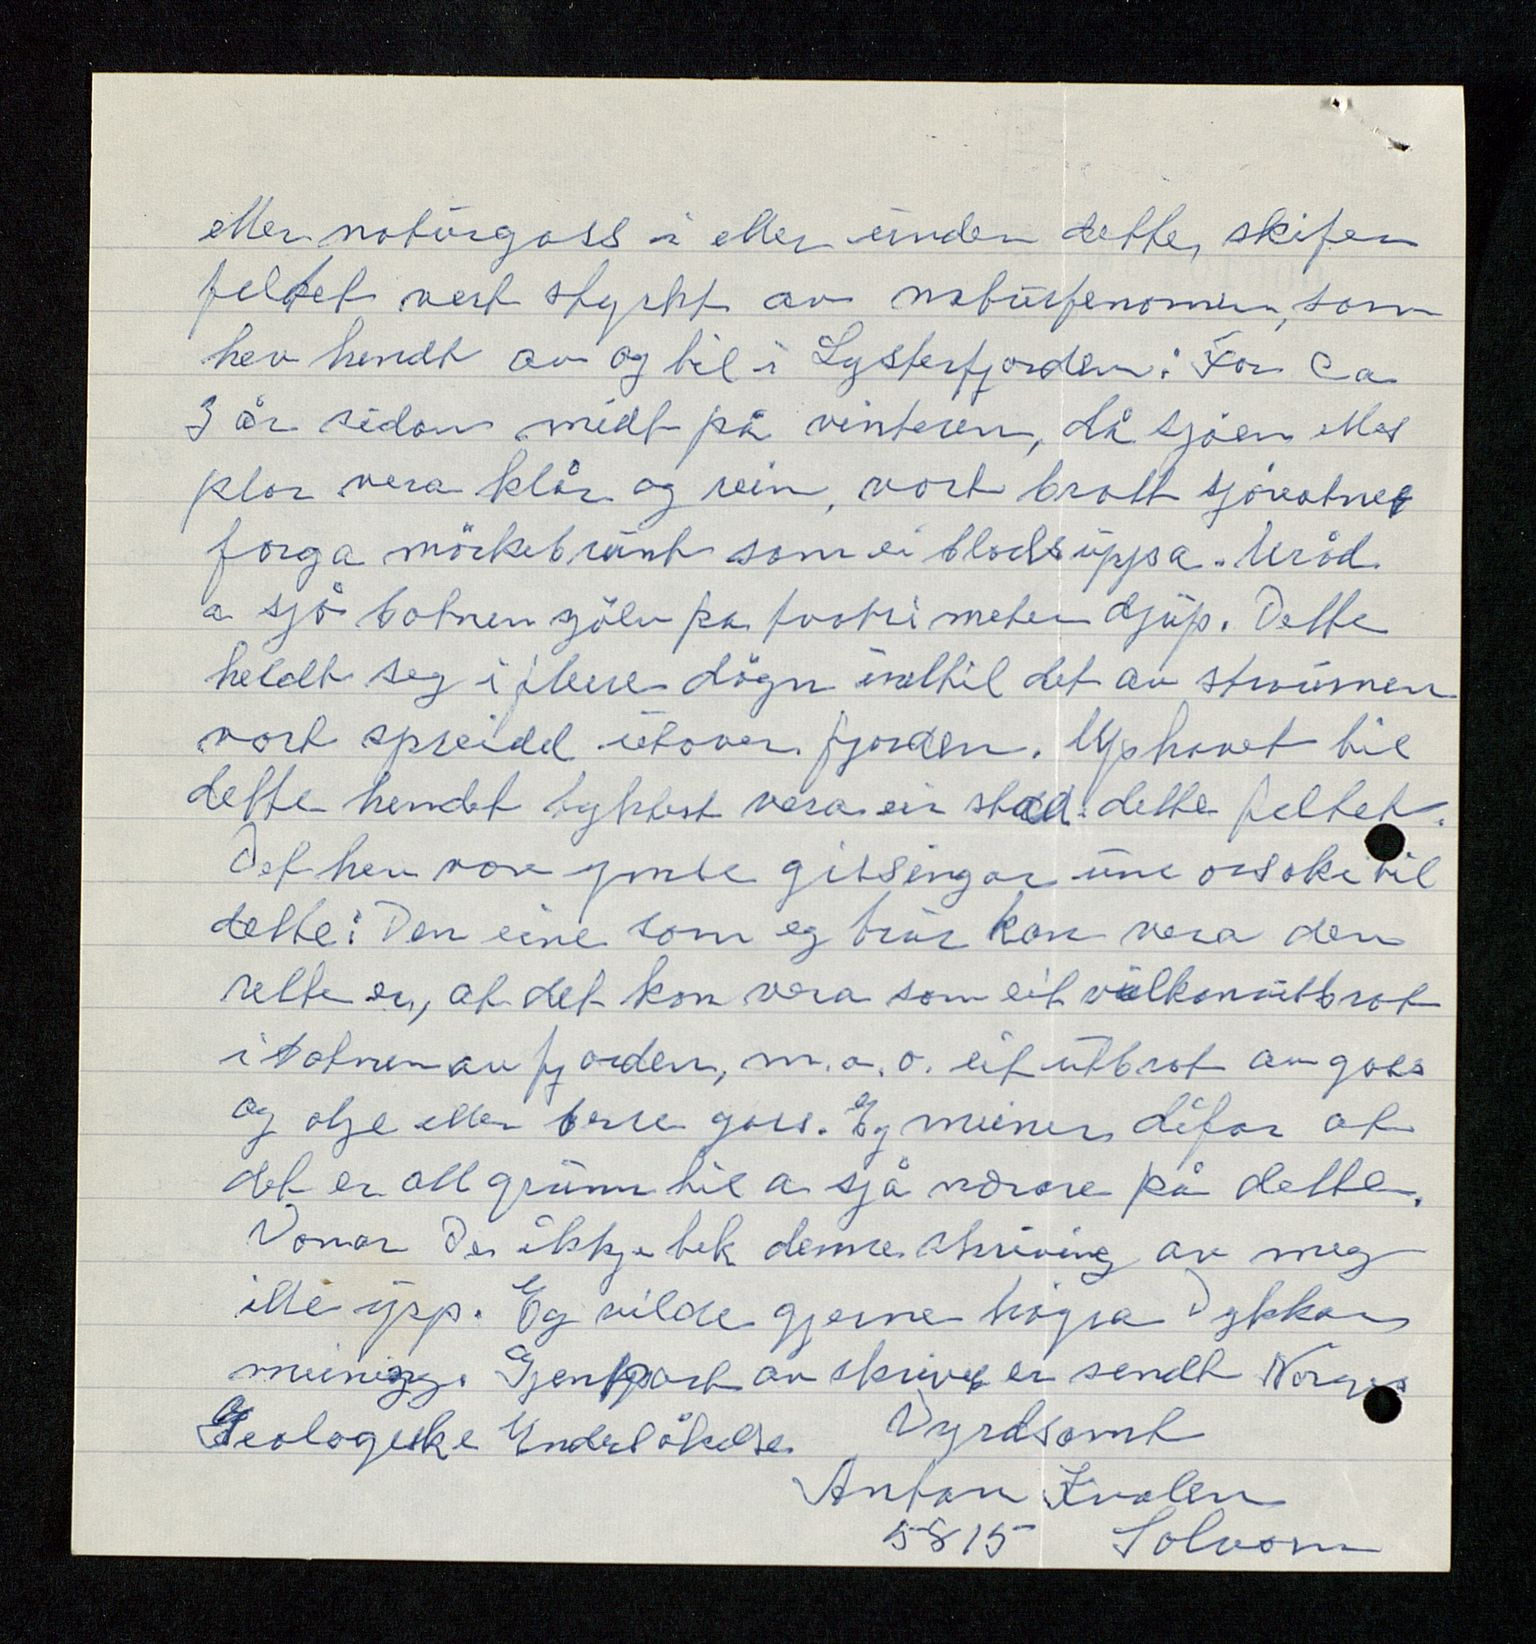 eller naturgass i eller under dette, skifer
feltet vert styrkt av naturfenomen, som
hev hendt av og til i Lysterfjorden: For ca
3 år sidan midt på vinteren, då sjöen elles
plar vera klår og rein, vart brått sjövatnet
farga mörkebrunt som ei blodsuppa. Uråd
a sjå botnen sjölv på tvotri meter djup. Dette
heldt seg i fleire dögn indtil det av straumen
vart spreidd utover fjorden. Uphavet til
dette hendet tyktest vera ein stad i dette feltet.
Det hev vore ymse gitsingar um orsaki til
dette: Den eine som eg trur kan vera den
rette er, at det kan vera som eit vulkanutbrot
i botnen av fjorden, m.a.o. eit utbrot av gass
og olje eller berre gass. Eg meiner difor at
det er all grunn til a sjå nærare på dette.
Vonar De ikkje tek denne skriving av meg
ille upp. Eg vilde gjerne högra Dykkar
meining. Genpart av skrivet er sendt Norges
Geologiske Undersökelse. Vyrdsamt
Anton Kvalen
5815 Solvorn